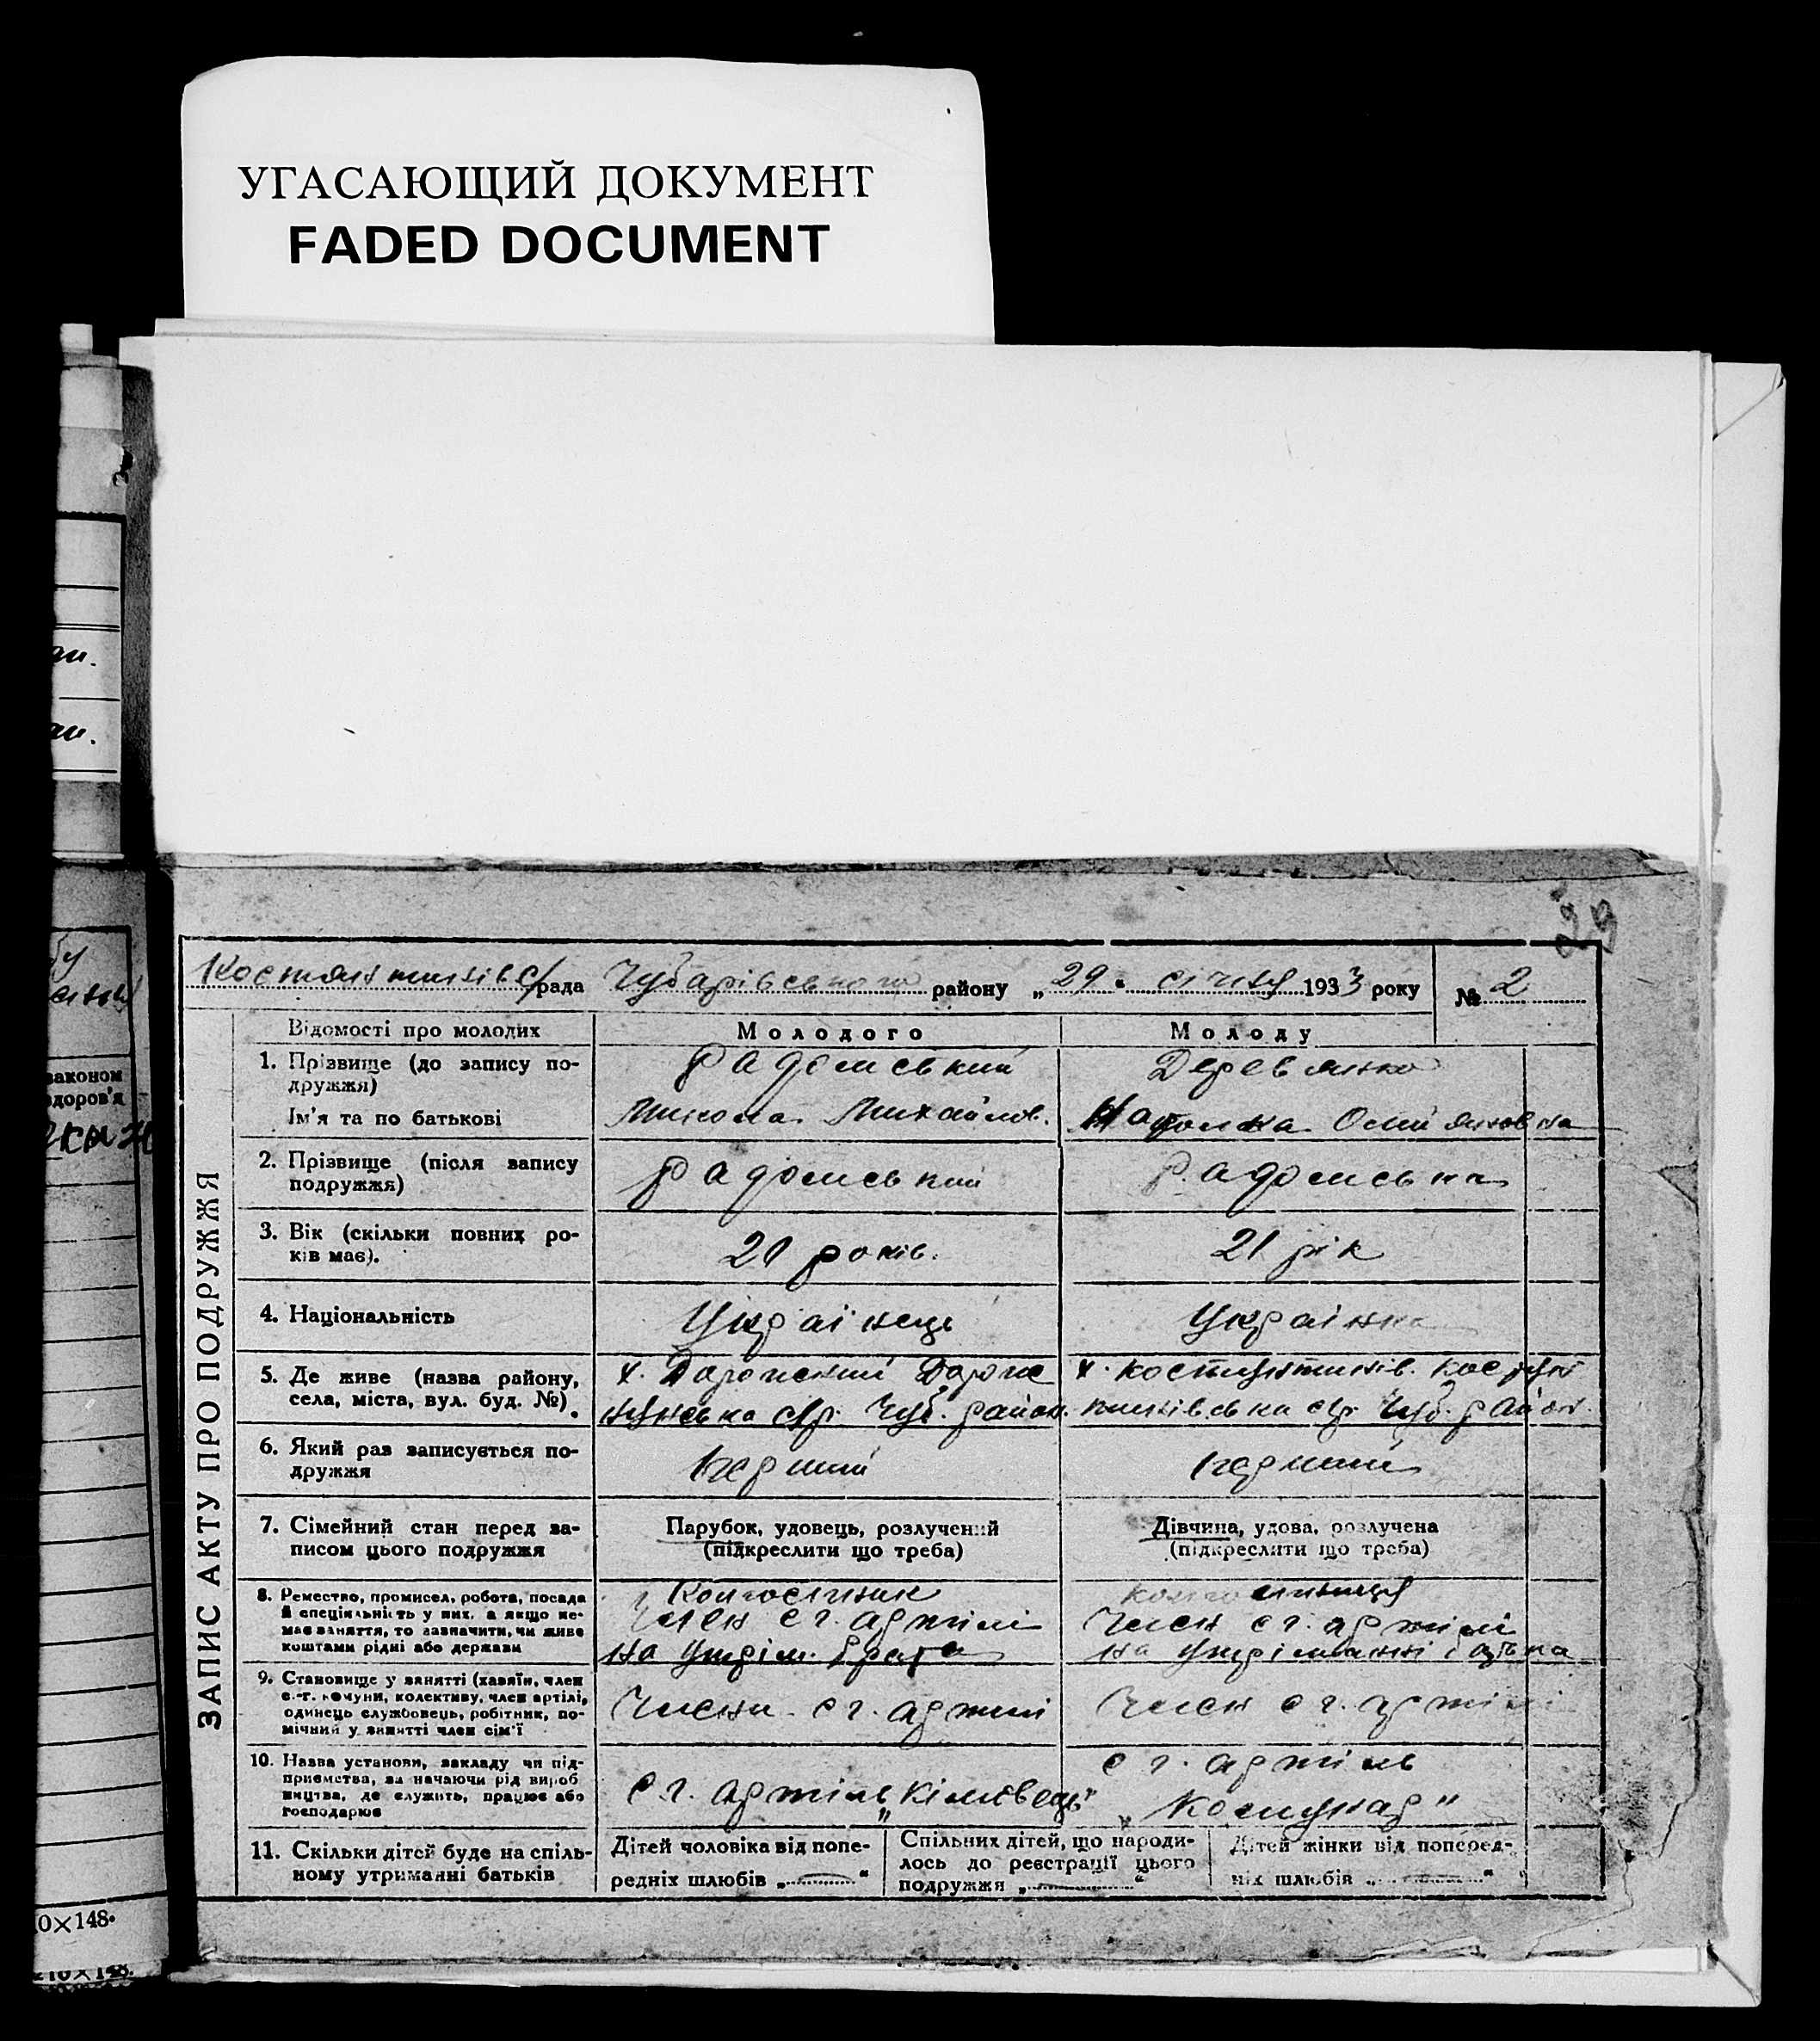 УГАСАЮЩИЙ ДОКУМЕНТ
FADED DOCUMENT
29
Костянтинів с/рада Чубарівського району „29" січня 1933 року № 2
ЗАПИС АКТУ ПРО ПОДРУЖЖЯ
Відомості про молодих
Молодого
Молоду
1. Прізвище (до запису по-
дружжя)
Ім'я та по батькові
Радомський
Микола Михайлов.
Деревянко
2. Прізвище (після запису
подружжя)
Радомський
Радомська
3. Вік (скільки повних ро-
ків має).
20 років.
21 рік
4. Національність
Українець
Українка
5. Де живе (назва району,
села, міста, вул. буд. №)
с/р. Чуб. район.
х. Костянтинів. Костян
тинівська с/р. Чуб. район.
6. Який раз записується по-
дружжя
Перший
Перший
7. Сімейний стан перед за-
писом цього подружжя
Парубок, удовець, розлучений
(підкреслити що треба)
Дівчина, удова, розлучена
(підкреслити що треба)
8. Ремество, промисел, робота, посада
й спеціяльність у них, а якщо не-
має заняття, то зазначити, чи живе
коштами рідні або держави
Колгоспник
Член с г. артілі
на утрім. брата
колгоспниця
Член с г. артілі
на утріманні батька
9. Становище у занятті (хазяїн, член
с.-г. комуни, колективу, член артілі,
одинець службовець, робітник, по-
мічний у занятті член сім'ї
Члени с г. артілі
Член с г. артілі
10. Назва установи, закладу чи під-
приємства, зазначаючи рід вироб
ництва, де служить, працює або
господарює
с. г. артіль
с г. артіль
„Комунар"
11. Скільки дітей буде на спіль-
ному утриманні батьків
Дітей чоловіка від попе-
редніх шлюбів „—"
Спільних дітей, що народи-
лось до реєстрації цього
подружжя „—"
Дітей жінки від поперед-
ніх шлюбів „—"
законом
здоров'я
0×148.
210×148.